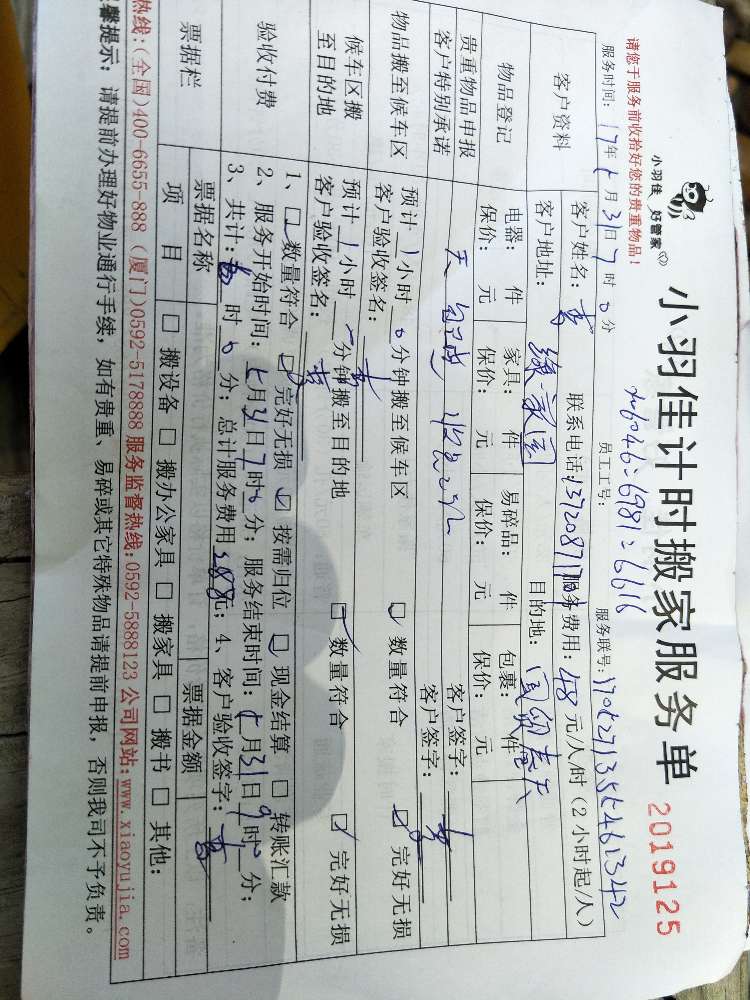 小羽佳 好管家
小羽佳计时搬家服务单
2019125
请您于服务前收拾好您的贵重物品!
员工工号:
服务联号:
服务时间: 17年5月31日7时0分
客户资料
客户姓名:
联系电话:
服务费用: 48元/人/时(2小时起/人)
客户地址: 绿家园
目的地:
物品登记
电器: 件 家具: 件 易碎品: 件 包裹: 件
保价: 元 保价: 元 保价: 元 保价: 元
贵重物品申报
客户签字:
客户特别承诺
客户签字:
物品搬至候车区
预计1小时0分钟搬至候车区
数量符合 完好无损
客户验收签名:
候车区搬
至目的地
预计1小时 分钟搬至目的地
数量符合 完好无损
客户验收签名:
验收付费
1、数量符合 完好无损 按需归位 现金结算 转账汇款
2、服务开始时间: 5月31日7时0分; 服务结束时间: 5月31日9时 分;
3、共计: 时0分; 总计服务费用288元; 4、客户验收签字:
票据栏
票据名称
票据金额
项目
搬设备 搬办公家具 搬家具 搬书 其他:
热线:(全国)400-6655-888 (厦门)0592-5178888 服务监督热线:0592-5888123 公司网站:www.xiaoyujia.com
馨提示: 请提前办理好物业通行手续, 如有贵重、易碎或其它特殊物品请提前申报, 否则我司不予负责。